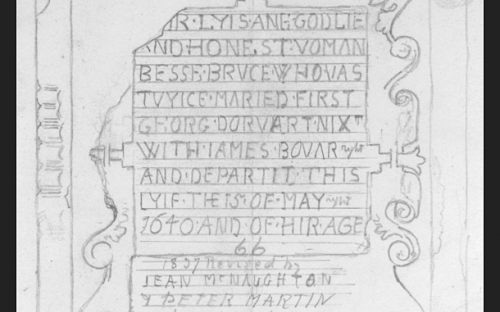 HIR·LYIS·ANE·GODLIE
AND HONEST·VOMAN
BESSE·BRVCE VHOVAS
TVYICE·MARIED·FIRST
GEORG·DORVART·NIXT
WITH·IAMES·BOVAR
AND·DEPARTIT·THIS
LYIF·THE 15 OF·MAY
1640 AND·OF·HIR·AGE
66
1837 Revised by
JEAN McNAUGHTON
& PETER MARTIN